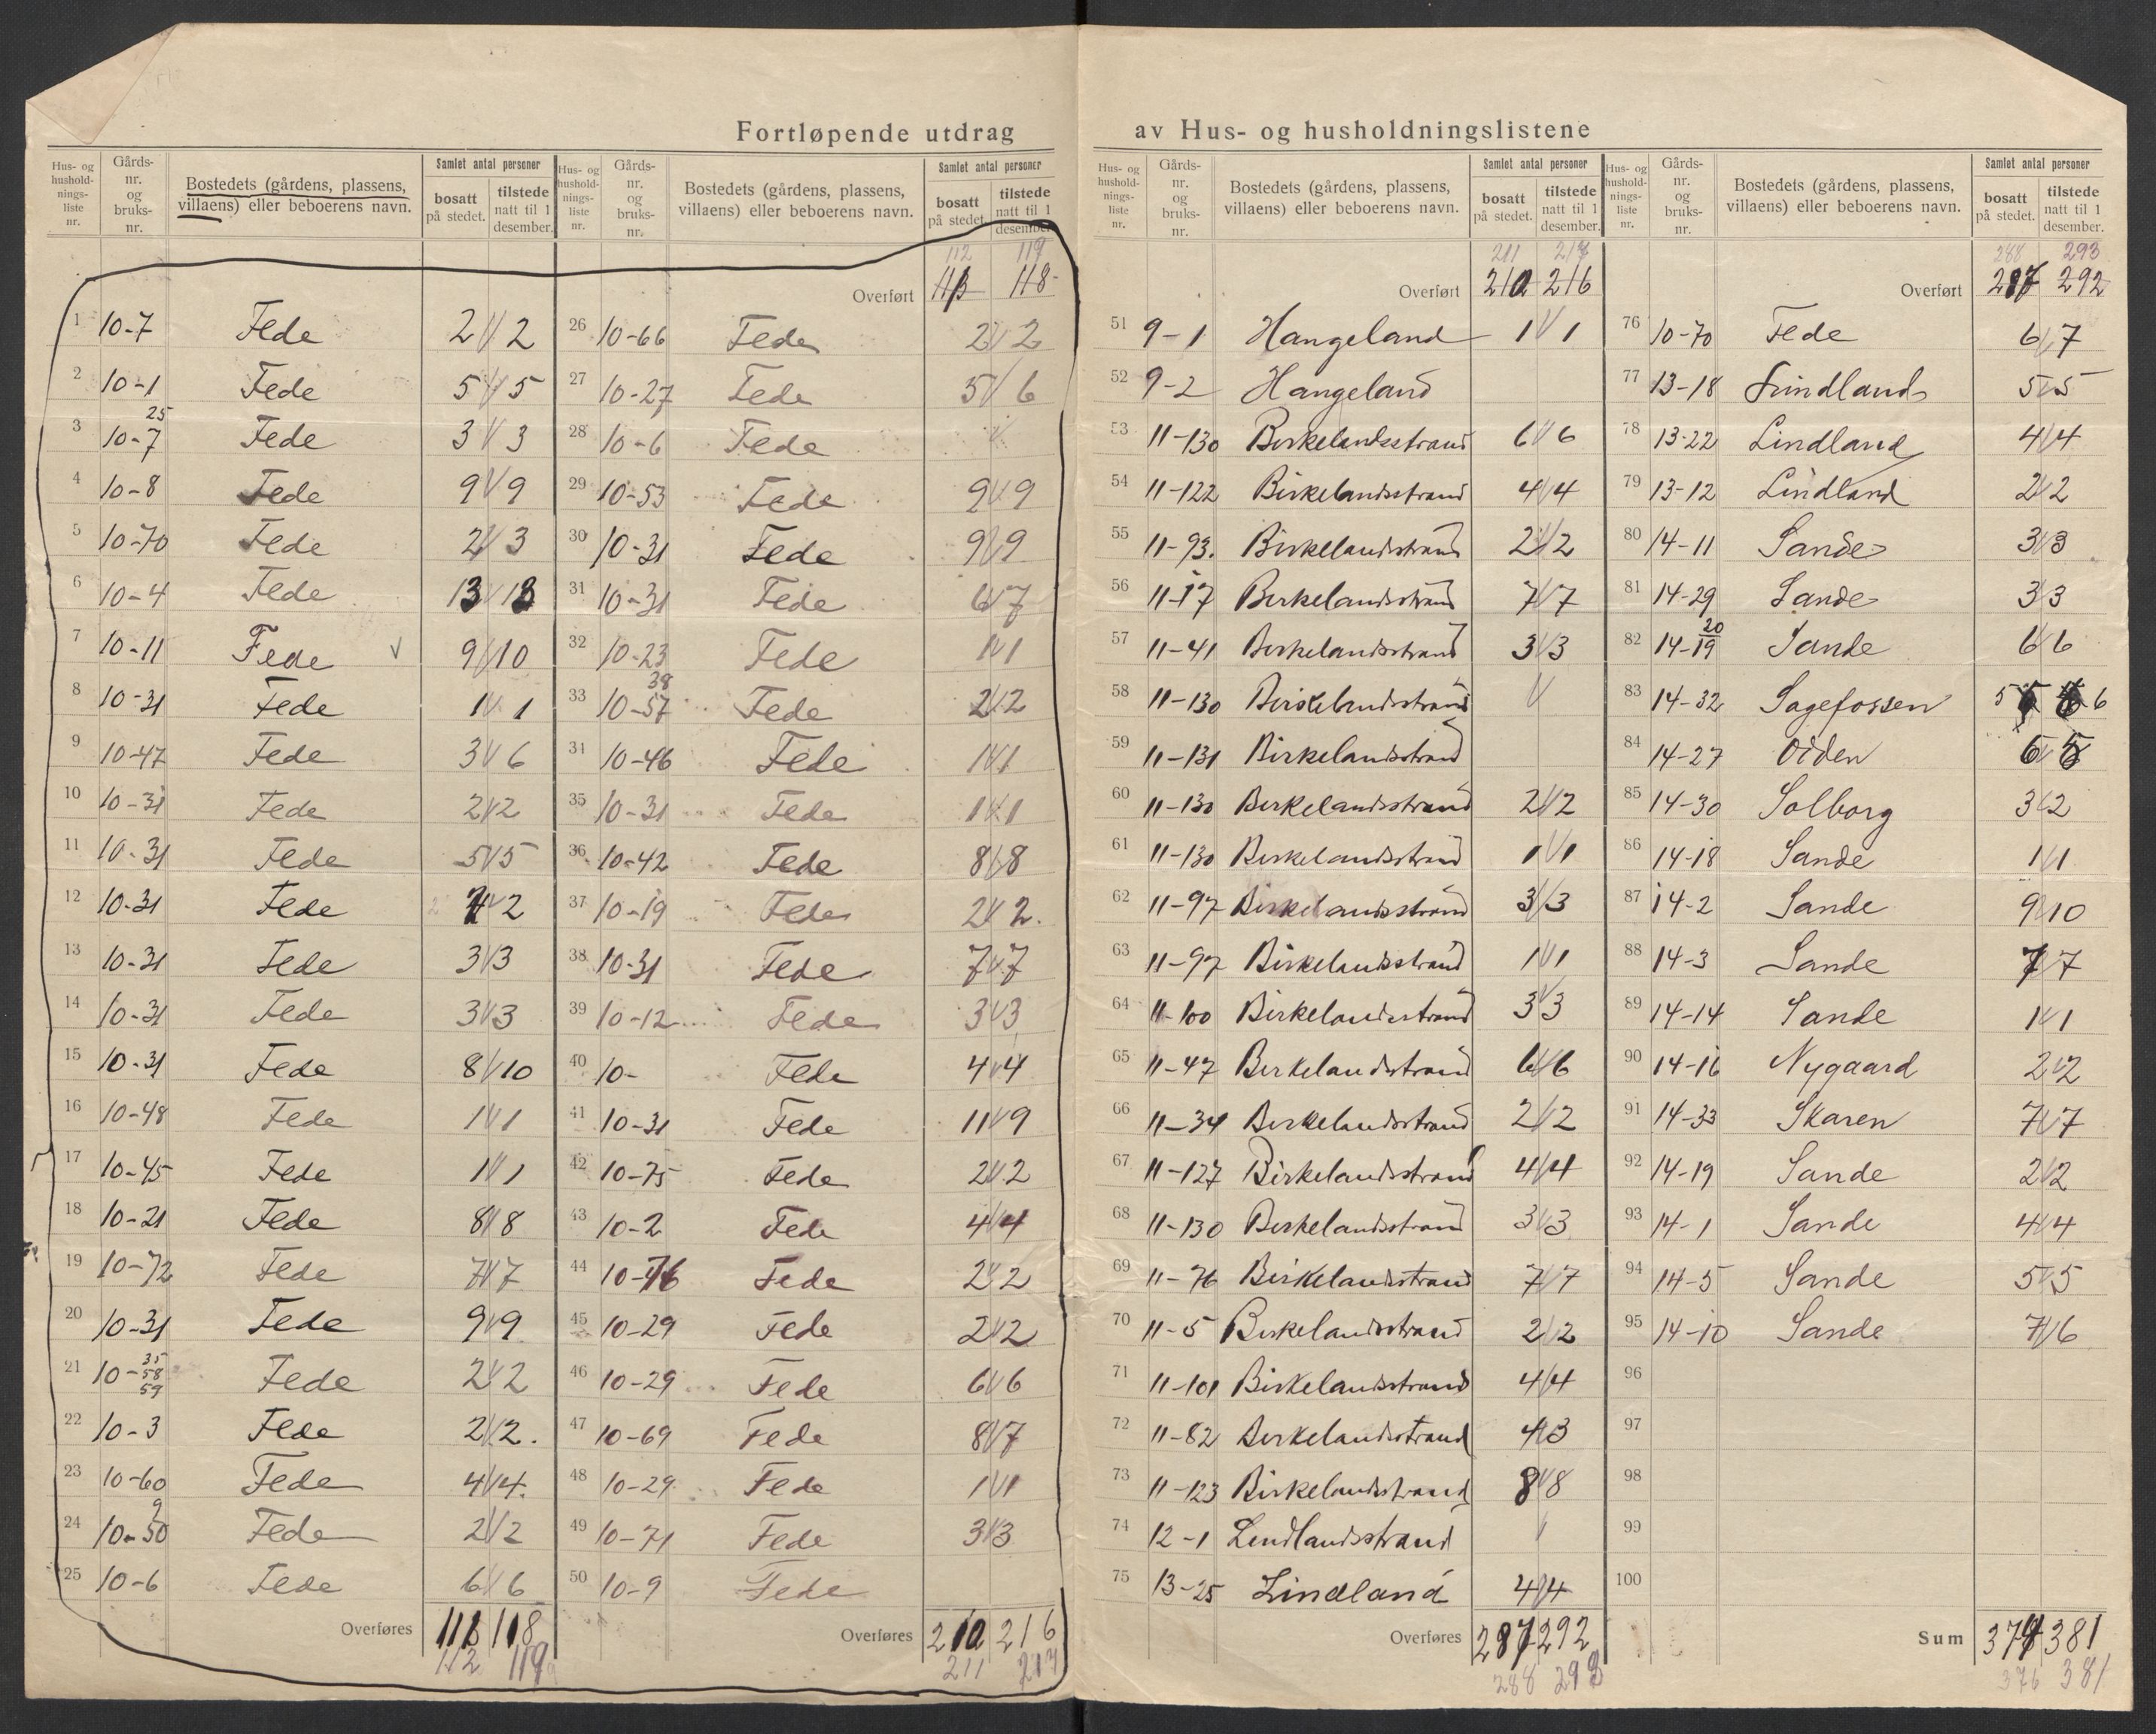 Fortløpende utdrag av Hus- og husholdningslistene
Hus- og hushold- nings- liste nr. | Gårds- nr. og bruks- nr. | Bostedets (gårdens, plassens, villaens) eller beboerens navn. | Samlet antal personer | bosatt på stedet. | tilstede natt til 1 desember.
1 10-7 Fede 2 2
2 10-1 Fede 5 5
3 10-7 25 Fede 3 3
4 10-8 Fede 9 9
5 10-70 Fede 2 3
6 10-4 Fede 13 13
7 10-11 Fede 9 10
8 10-31 Fede 1 1
9 10-47 Fede 3 6
10 10-31 Fede 2 2
11 10-31 Fede 5 5
12 10-31 Fede 2 2
13 10-31 Fede 3 3
14 10-31 Fede 3 3
15 10-31 Fede 8 10
16 10-48 Fede 1 1
17 10-45 Fede 1 1
18 10-21 Fede 8 8
19 10-72 Fede 7 7
20 10-31 Fede 9 9
21 10-35 58 59 Fede 2 2
22 10-3 Fede 2 2.
23 10-60 Fede 4 4.
24 10-50 9 Fede 2 2
25 10-6 Fede 6 6
Overføres 118
112 119
Hus- og hushold- nings- liste nr. | Gårds- nr. og bruks- nr. | Bostedets (gårdens, plassens, villaens) eller beboerens navn. | Samlet antal personer | bosatt på stedet. | tilstede natt til 1 desember.
112 119
Overført 118
26 10-66 Fede 2 2
27 10-27 Fede 5 6
28 10-6 Fede
29 10-53 Fede 9 9
30 10-31 Fede 9 9
31 10-31 Fede 6 7
32 10-23 Fede 1 1
33 10-57 38 Fede 2 2
34 10-46 Fede 1 1
35 10-31 Fede 1 1
36 10-42 Fede 8 8
37 10-19 Fede 2 2.
38 10-31 Fede 7 7
39 10-12 Fede 3 3
40 10- Fede 4 4
41 10-31 Fede 11 9
42 10-75 Fede 2 2
43 10-2 Fede 4 4
44 10-76 Fede 2 2
45 10-29 Fede 2 2
46 10-29 Fede 6 6
47 10-69 Fede 8 7
48 10-29 Fede 1 1
49 10-71 Fede 3 3
50 10-9 Fede
Overføres 210 216
211 217
Hus- og hushold- nings- liste nr. | Gårds- nr. og bruks- nr. | Bostedets (gårdens, plassens, villaens) eller beboerens navn. | Samlet antal personer | bosatt på stedet. | tilstede natt til 1 desember.
211 217
Overført 210 216
51 9-1 Hangeland 1 1
52 9-2 Hangeland
53 11-130 Birkelandsstrand 6 6
54 11-122 Birkelandsstrand 4 4
55 11-93. Birkelandsstrand 2 2
56 11-17 Birkelandsstrand 7 7
57 11-41 Birkelandsstrand 3 3
58 11-130 Birkelandsstrand
59 11-131 Birkelandsstrand
60 11-130 Birkelandsstrand 2 2
61 11-130 Birkelandsstrand 1 1
62 11-97 Birkelandsstrand 3 3
63 11-97 Birkelandsstrand 1 1
64 11-100 Birkelandsstrand 3 3
65 11-47 Birkelandstrand 6 6
66 11-34 Birkelandsstrand 2 2
67 11-127 Birkelandsstrand 4 4
68 11-130 Birkelandsstrand 3 3
69 11-76 Birkelandstrand 7 7
70 11-5 Birkelandsstrand 2 2
71 11-101 Birkelandsstrand 4 4
72 11-82 Birkelandsstrand 4 3
73 11-123 Birkelandsstrand 8 8
74 12-1 Lindlandsstrand
75 13-25 Lindland 4 4
Overføres 287 292
288 293
Hus- og hushold- nings- liste nr. | Gårds- nr. og bruks- nr. | Bostedets (gårdens, plassens, villaens) eller beboerens navn. | Samlet antal personer | bosatt på stedet. | tilstede natt til 1 desember.
288 293
Overført 287 292
76 10-70 Fede 6 7
77 13-18 Lindland 5 5
78 13-22 Lindland 4 4
79 13-12 Lindland 2 2
80 14-11 Sande 3 3
81 14-29 Sande 3 3
82 14-19 20 Sande 6 6
83 14-32 Sagefossen 5 6
84 14-27 Oiden 6 5
85 14-30 Solborg 3 2
86 14-18 Sande 1 1
87 14-2 Sande 9 10
88 14-3 Sande 7 7
89 14-14 Sande 1 1
90 14-16 Nygaard 2 2
91 14-33 Skaren 7 7
92 14-19 Sande 2 2
93 14-1 Sande 4 4
94 14-5 Sande 5 5
95 14-10 Sande 7 6
96
97
98
99
100
Sum 381
376 381